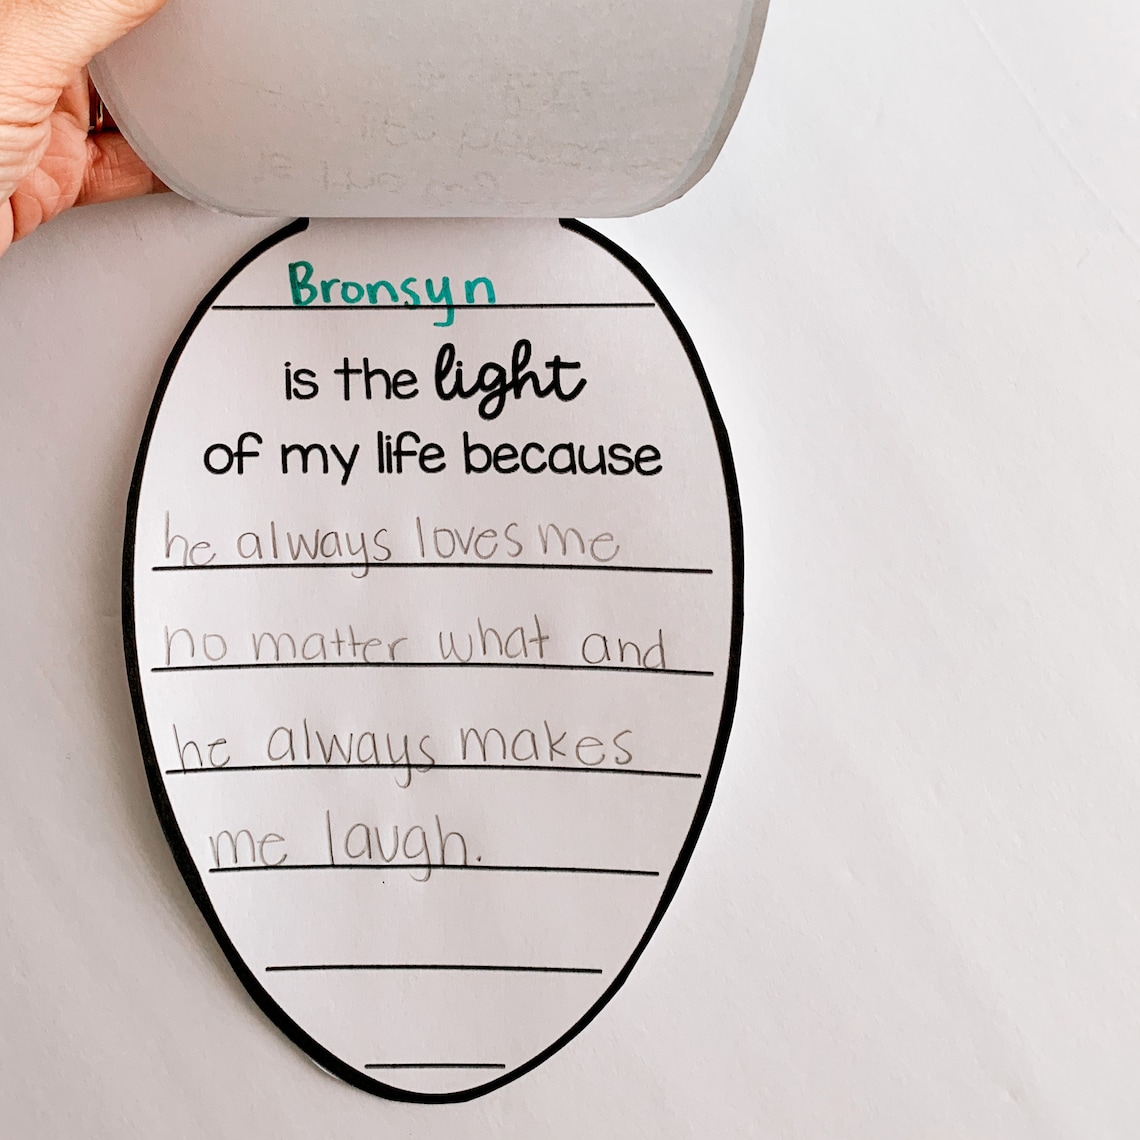 Bronsyn
is the light
of my life because
he always loves me
no matter what and
he always makes
me laugh.